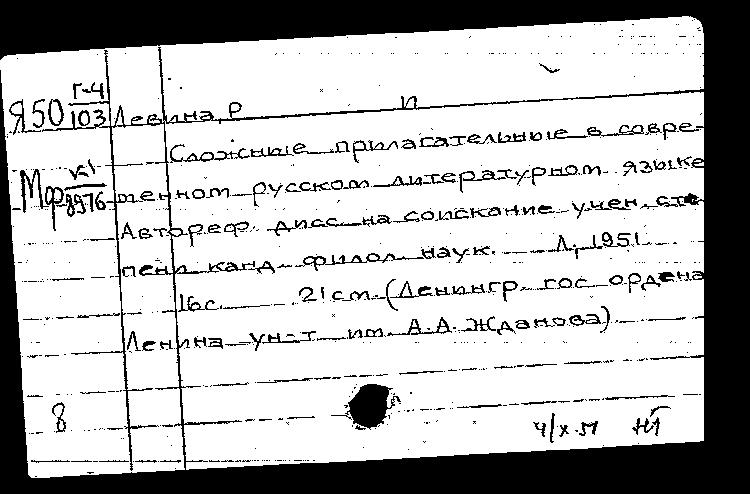 Г-4
Я50 103 Левина, Р п
Сложные прилагательные в совре-
Мф К1 8976 менном русском литературном языке
Автореф. дисс. на соискание учен. сте
пени канд. филол. наук. Л, 1951
16с. 21см. (Ленингр. гос ордена
Ленина ун-т им. А.А. Жданова).
8
4/X.51 НТ